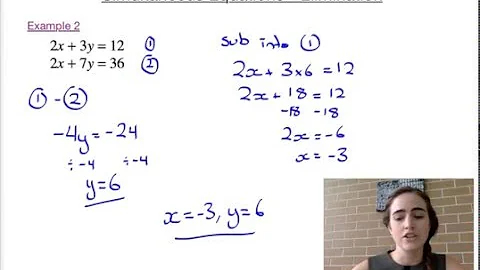 Simultaneous Equations - Elimination
Example 2
2x + 3y = 12 ①
2x + 7y = 36 ②
① - ②
-4y = -24
÷-4 ÷-4
y = 6
sub into ①
2x + 3×6 = 12
2x + 18 = 12
-18 -18
2x = -6
x = -3
x = -3, y = 6